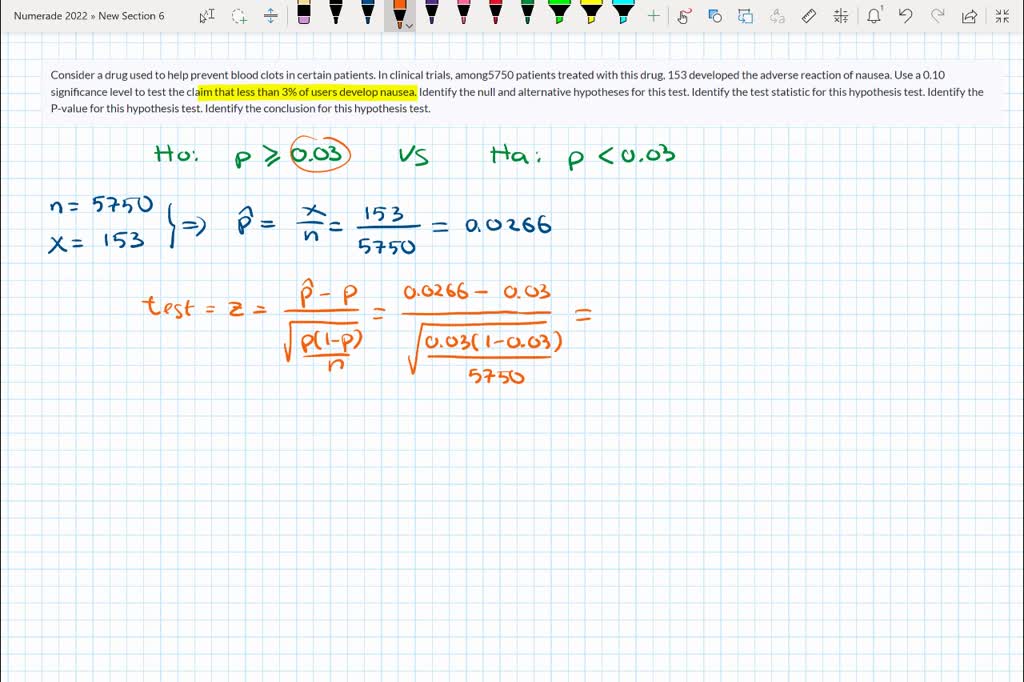 Numerade 2022 » New Section 6
Consider a drug used to help prevent blood clots in certain patients. In clinical trials, among5750 patients treated with this drug, 153 developed the adverse reaction of nausea. Use a 0.10
significance level to test the claim that less than 3% of users develop nausea. Identify the null and alternative hypotheses for this test. Identify the test statistic for this hypothesis test. Identify the
P-value for this hypothesis test. Identify the conclusion for this hypothesis test.
Ho: p ≥ 0.03 vs Ha: p < 0.03
n = 5750
x = 153
} ⇒ p̂ = x/n = 153/5750 = 0.0266
test = z = (p̂ - p)/√(p(1-p)/n) = (0.0266 - 0.03)/√(0.03(1-0.03)/5750) =